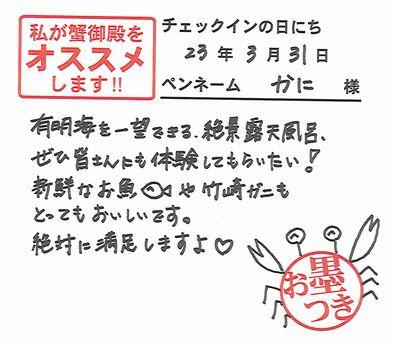 私が蟹御殿を
オススメ
します!!
チェックインの日にち
23 年 3 月 31 日
ペンネーム かに 様
有明海を一望できる、絶景露天風呂、
ぜひ皆さんにも体験してもらいたい!
新鮮なお魚や竹崎ガニも
とってもおいしいです。
絶対に満足しますよ♡
お墨つき